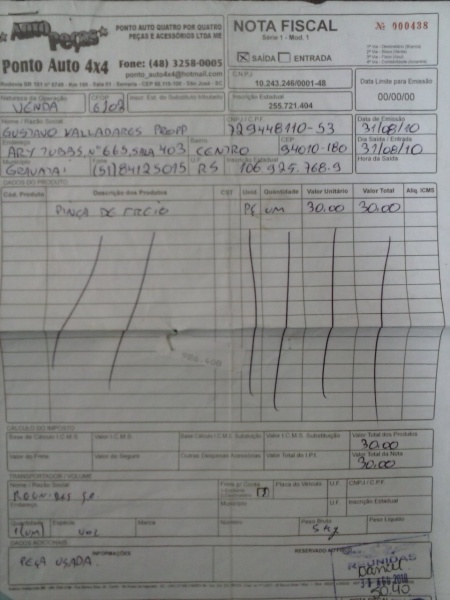 AUTO Peças
PONTO AUTO QUATRO POR QUATRO
PEÇAS E ACESSÓRIOS LTDA ME
Ponto Auto 4x4 Fone: (48) 3258-0005
ponto_auto4x4@hotmail.com
NOTA FISCAL Nº 000438
Série 1 - Mod. 1
X SAÍDA ENTRADA
C.N.P.J.
10.243.246/0001-48
Data Limite para Emissão
00/00/00
Natureza da Operação
VENDA
CFOP
Insc. Est. do Substituto Tributário
Inscrição Estadual
255.721.404
Nome / Razão Social
GUSTAVO VALLADARES
CNPJ / C.P.F.
729448110-53
Data de Emissão
31/08/10
Endereço
ARY TUBBS, Nº 665, SALA 403
Bairro
CENTRO
CEP
94010-180
Dia Saída / Entrada
31/08/10
Município
Fone
(51) 84125015
U.F.
RS
Inscrição Estadual
106.925.768-9
Hora da Saída
DADOS DO PRODUTO
Cód. Produto Descrição dos Produtos CST Unid Quantidade Valor Unitário Valor Total Aliq. ICMS
PINÇA DE FREIO PÇ UM 30,00 30.00
CÁLCULO DO IMPOSTO
Base de Cálculo I.C.M.S. Valor I.C.M.S. Base Cálculo I.C.M. Substituição Valor I.C.M.S. Substituição Valor Total dos Produtos
30.00
Valor do Frete Valor do Seguro Outras Despesas Acessórias Valor Total do I.P.I. Valor Total da Nota
30.00
TRANSPORTADOR / VOLUME
Nome / Razão Social Frete p/ Conta Placa do Veículo U.F. CNPJ / C.P.F.
Endereço Município U.F. Inscrição Estadual
Quantidade Espécie Marca Número Peso Bruto Peso Líquido
1 (UM) VOL 5 Kg
DADOS ADICIONAIS
INFORMAÇÕES
PEÇA USADA.
RESERVADO AO FISCO
REUNIDAS
Daniel
50.40